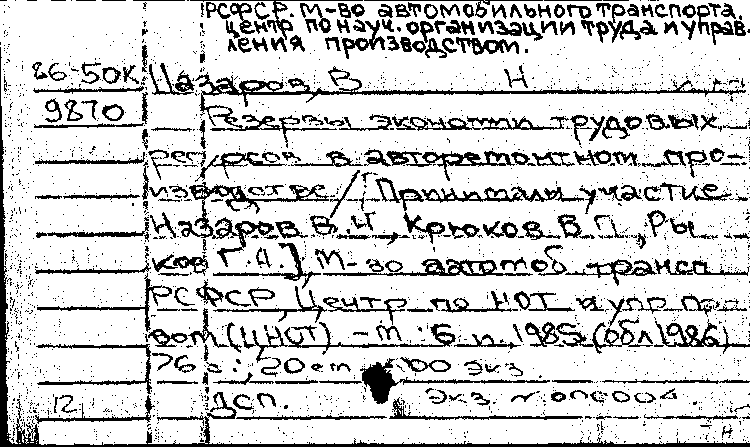 РСФСР. М-во автомобильного транспорта.
центр по науч. организации труда и управ-
ления производством.
86-50К Назаров, В Н и др
9870 Резервы экономии трудовых
ресурсов в авторемонтном про-
изводстве / [Принимали участие
Назаров В.Н, Крюков В.П, Ры
ков Г.А.], М-во автомоб. трансп
РСФСР, Центр по НОТ и упр
вом (ЦНОТ). - М : Б и, 1985 (обл 1986)
76 с., 20 cm 
12 ДСП. Экз N 000004.